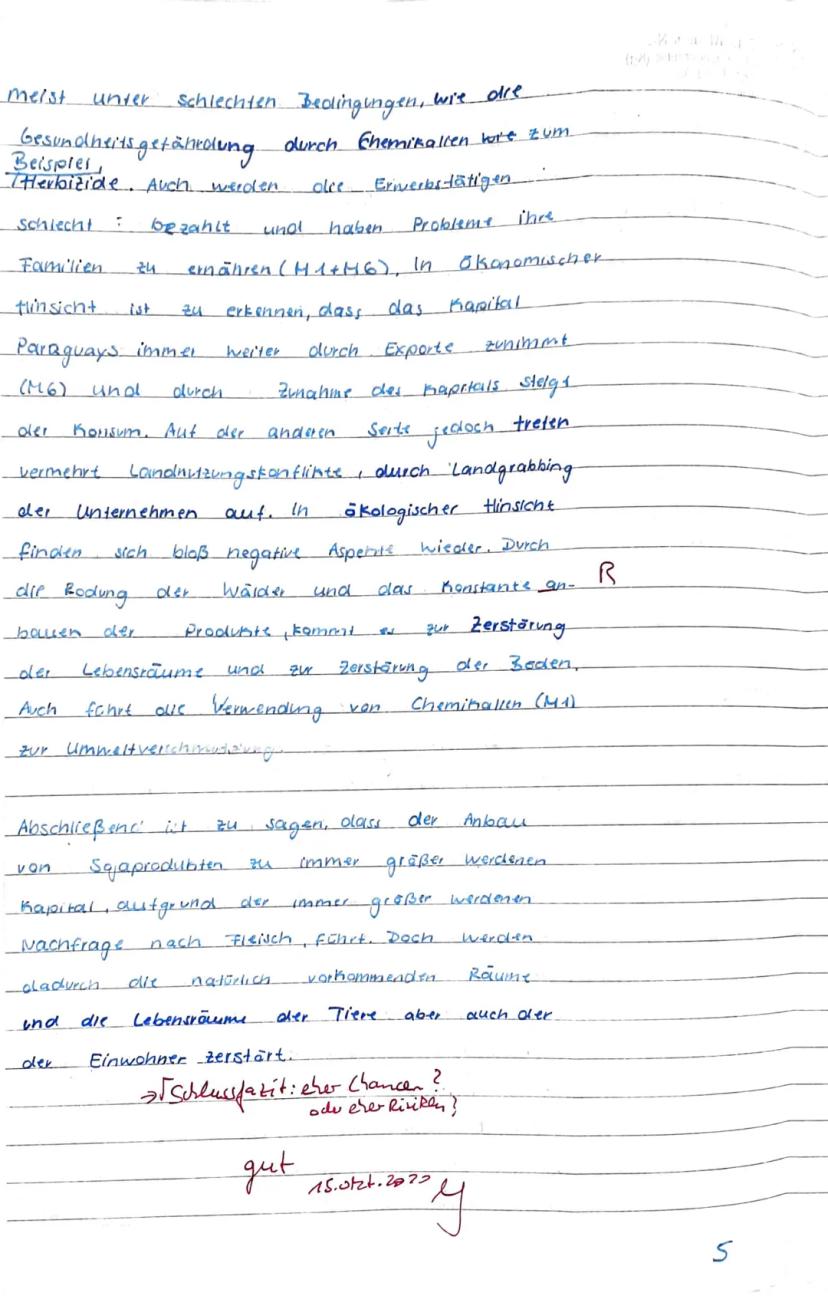 meist unter schlechten Bedingungen, wie die
Gesundheitsgefährdung durch Chemikalien wie zum
Beispiel,
Herbizide. Auch werden die Erwerbstätigen
schlecht bezahlt und haben Probleme ihre
Familien zu ernähren (M1+M6). In ökonomischer
Hinsicht ist zu erkennen, dass das Kapital
Paraguays immer weiter durch Exporte zunimmt
(M6) und durch Zunahme des Kapitals steigt
der Konsum. Auf der anderen Seite jedoch treten
vermehrt Landnutzungskonflikte, durch Landgrabbing
der Unternehmen auf. In ökologischer Hinsicht
finden sich bloß negative Aspekte wieder. Durch
die Rodung der Wälder und das Konstante an- R
bauen der Produkte, kommt es zur Zerstörung
der Lebensräume und zur Zerstörung der Böden.
Auch führt die Verwendung von Chemikalien (M1)
zur Umweltverschmutzung.
Abschließend ist zu sagen, dass der Anbau
von Sojaprodukten zu immer größer werdenen
Kapital, aufgrund der immer größer werdenen
Nachfrage nach Fleisch, führt. Doch werden
dadurch die natürlich vorkommenden Räume
und die Lebensräume der Tiere aber auch der
der Einwohner zerstört.
→ Schlussfazit: eher Chancen?
oder eher Risiken?
gut
15.Okt.2020
5